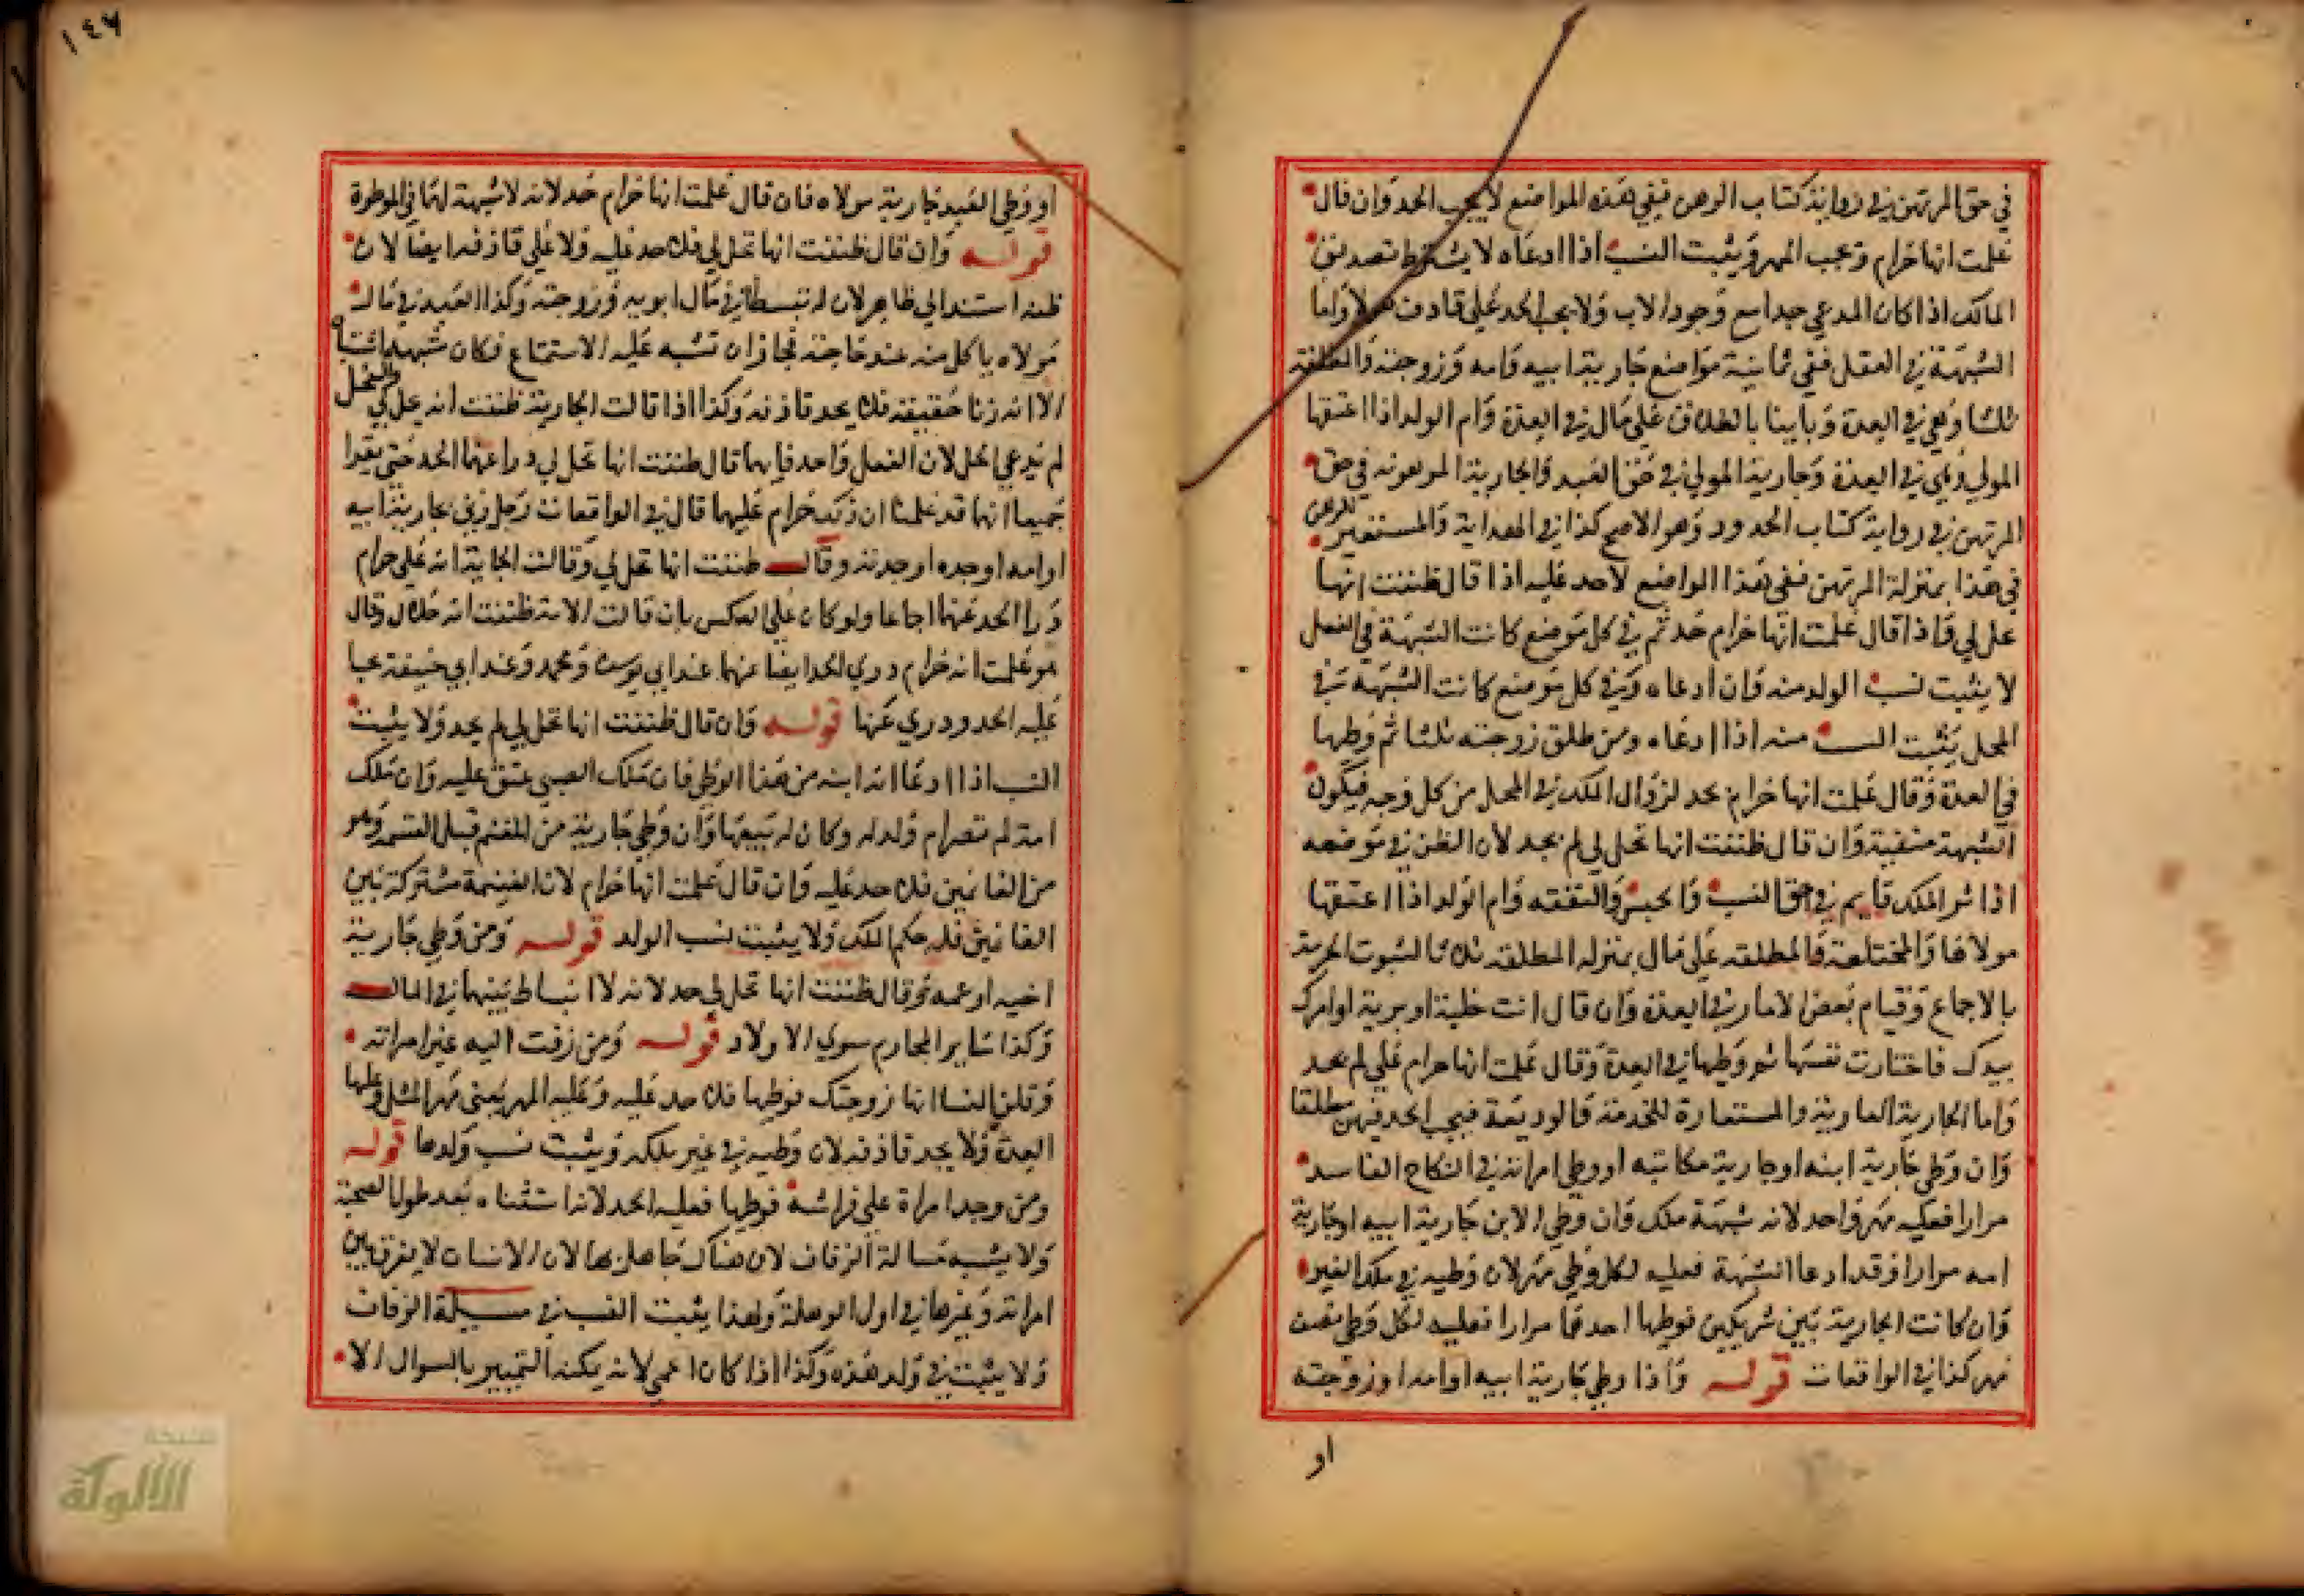 في حق المرتهن في رواية كتاب الرهن ففي هذه المواضع لا يجب الحد وان قال
علمت انها حرام ويجب المهر ويثبت النسب اذا ادعاه لا يشترط تصديق
المالك اذا كان المدعي جدا مع وجود الاب ولا يجب الحد على قاذف هولا واما
الشبهة في الفعل ففي ثمانية مواضع جارية ابيه وامه وزوجته والمطلقة
ثلثا وهي في العدة وبائنا بالطلاق على مال في العدة وام الولد اذا اعتقها
المولي وهي في العدة وجارية المولي في حق العبد والجارية المرهونة في حق
المرتهن في رواية كتاب الحدود وهو الاصح كذا في الهداية والمستعير للرهن
في هذا بمنزلة المرتهن ففي هذا المواضع لا حد عليه اذا قال ظننت انها
تحل لي واذا قال علمت انها حرام حد ثم في كل موضع كانت الشبهة في الفعل
لا يثبت نسب الولد منه وان ادعاه وفي كل موضع كانت الشبهة في
المحل يثبت النسب منه اذا ادعاه ومن طلق زوجته ثلثا ثم وطيها
في العدة وقال علمت انها حرام حد لزوال الملك في المحل من كل وجه فيكون
الشبهة منتفية وان قال ظننت انها تحل لي لم يحد لان الظن في موضعه
اذ اثر الملك قايم في حق النسب والحبس والنفقه وام الولد اذا اعتقها
مولاها والمختلعة والمطلقه على مال بمنزلة المطلقه ثلاثا لثبوت الحرمة
بالاجماع وقيام بعض الاثار في العدة وان قال انت خلية او برية او امرك
بيدك فاختارت نفسها ثم وطيها في العدة وقال علمت انها حرام علي لم يحد
واما الجارية العارية والمستعارة للخدمة والوديعة فيجب الحد فيهن مطلقا
وان وطي جارية ابنه او جارية مكاتبه او وطي امراته في النكاح الفاسد
مرارا فعليه مهر واحد لانه شبهة ملك وان وطي الابن جارية ابيه او جارية
امه مرارا وقد ادعا الشبهة فعليه لكل وطي مهر لان وطيه في ملك الغير
وان كانت الجارية بين شريكين فوطيها احدهما مرارا فعليه لكل وطي نصف
مهر كذا في الواقعات قوله واذا وطي جارية ابيه او امه او زوجته
او
١٤٦
او وطي العبد جارية مولاه فان قال علمت انها حرام حد لانه لا شبهة لها في الموطوة
قوله وان قال ظننت انها تحل لي فلا حد عليه ولا علي قاذفه ايضا لان
ظنه استند الي ظاهر لان له تبسطا في مال ابويه وزوجته وكذا العبد في مال
مولاه ياكل منه عند حاجته فجاز ان تشبه عليه الاستمتاع فكان شبهة اشتباه
الا انه زنا حقيقة فلا يحد قاذفه وكذا اذا قالت الجارية ظننت انه يحل لي والفحل
لم يدعي الحل لان الفعل واحد فايهما قال ظننت انها تحل لي درا عنهما الحد حتي يقرا
جميعا انهما قد علمنا ان ذلك حرام عليهما قال في الواقعات رجل زني بجارية ابيه
او امه او جده او جدته وقال ظننت انها تحل لي وقالت الجارية انه علي حرام
درا الحد عنهما اجماعا ولو كان علي العكس بان قالت الامة ظننت انه حلال وقال
هو علمت انه حرام دري الحد ايضا عنهما عند ابي يوسف ومحمد وعند ابي حنيفة يجب
عليه الحد ودري عنها قوله وان قال ظننت انها تحل لي لم يحد ولا يثبت
النسب اذا ادعا انه ابنه من هذا الوطي فان ملك الصبي عتق عليه وان ملك
امته لم تصر ام ولد له وكان له بيعها وان وطي جارية من المغنم قبل القسمة وهو
من الغانمين فلا حد عليه وان قال علمت انها حرام لان الغنيمة مشتركة بين
الغانمين فله حكم الملك ولا يثبت نسب الولد قوله ومن وطي جارية
اخيه او عمه وقال ظننت انها تحل لي حد لانه لا انبساط بينهما في المال
وكذا سائر المحارم سوي الاولاد قوله ومن زفت اليه غير امراته
وقلن النسا انها زوجتك فوطيها فلا حد عليه وعليه المهر يعني مهر المثل وعليها
العدة ولا يحد قاذفه لان وطيه في غير ملكه ويثبت نسب ولدها قوله
ومن وجد امراة علي فراشه فوطيها فعليه الحد لانه استثناه بعد طول الصحبة
ولا يشبه مسالة الزفاف لان هناك جاهل بها لان الانسان لا يفرق بين
امراته وغيرها في اول الوهلة ولهذا يثبت النسب في مسيلة الزفاف
ولا يثبت في ولد هذه وكذا اذا كان اعمي لانه يمكنه التمييز بالسوال الا
الألوكة